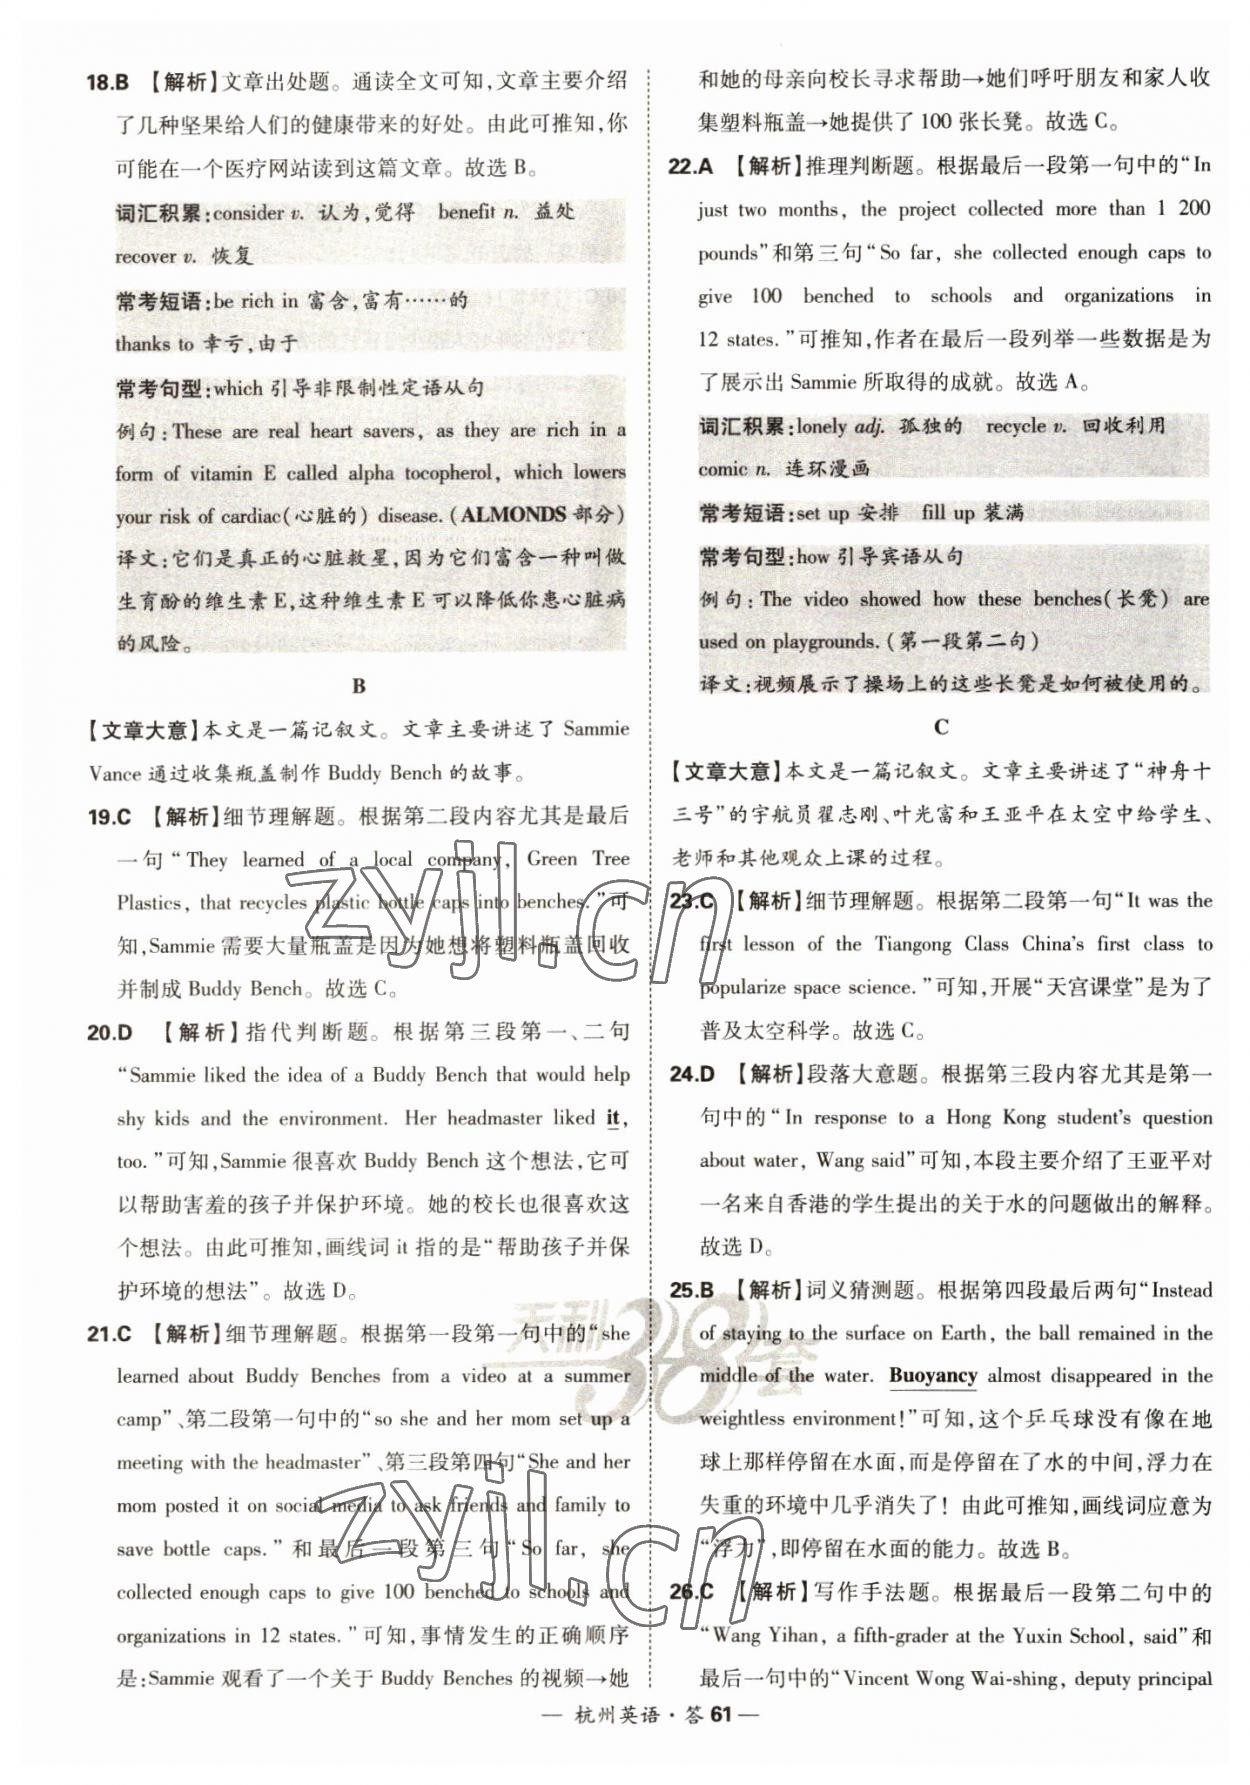 18.B 【解析】文章出处题。通读全文可知,文章主要介绍
了几种坚果给人们的健康带来的好处。由此可推知,你
可能在一个医疗网站读到这篇文章。故选 B。
词汇积累:consider v. 认为,觉得 benefit n. 益处
recover v. 恢复
常考短语:be rich in 富含,富有……的
thanks to 幸亏,由于
常考句型:which 引导非限制性定语从句
例句:These are real heart savers, as they are rich in a
form of vitamin E called alpha tocopherol, which lowers
your risk of cardiac(心脏的) disease. (ALMONDS 部分)
译文:它们是真正的心脏救星,因为它们富含一种叫做
生育酚的维生素 E,这种维生素 E 可以降低你患心脏病
的风险。
B
【文章大意】本文是一篇记叙文。文章主要讲述了 Sammie
Vance 通过收集瓶盖制作 Buddy Bench 的故事。
19.C 【解析】细节理解题。根据第二段内容尤其是最后
一句“They learned of a local company, Green Tree
Plastics, that recycles plastic bottle caps into benches.”可
知,Sammie 需要大量瓶盖是因为她想将塑料瓶盖回收
并制成 Buddy Bench。故选 C。
20.D 【解析】指代判断题。根据第三段第一、二句
“Sammie liked the idea of a Buddy Bench that would help
shy kids and the environment. Her headmaster liked it,
too.”可知,Sammie 很喜欢 Buddy Bench 这个想法,它可
以帮助害羞的孩子并保护环境。她的校长也很喜欢这
个想法。由此可推知,画线词 it 指的是“帮助孩子并保
护环境的想法”。故选 D。
21.C 【解析】细节理解题。根据第一段第一句中的“she
learned about Buddy Benches from a video at a summer
camp”、第二段第一句中的“so she and her mom set up a
meeting with the headmaster”、第三段第四句“She and her
mom posted it on social media to ask friends and family to
save bottle caps.”和最后一段第三句“So far, she
collected enough caps to give 100 benched to schools and
organizations in 12 states.”可知,事情发生的正确顺序
是:Sammie 观看了一个关于 Buddy Benches 的视频→她
和她的母亲向校长寻求帮助→她们呼吁朋友和家人收
集塑料瓶盖→她提供了 100 张长凳。故选 C。
22.A 【解析】推理判断题。根据最后一段第一句中的“In
just two months, the project collected more than 1 200
pounds”和第三句“So far, she collected enough caps to
give 100 benched to schools and organizations in
12 states.”可推知,作者在最后一段列举一些数据是为
了展示出 Sammie 所取得的成就。故选 A。
词汇积累:lonely adj. 孤独的 recycle v. 回收利用
comic n. 连环漫画
常考短语:set up 安排 fill up 装满
常考句型:how 引导宾语从句
例句:The video showed how these benches(长凳) are
used on playgrounds. (第一段第二句)
译文:视频展示了操场上的这些长凳是如何被使用的。
C
【文章大意】本文是一篇记叙文。文章主要讲述了“神舟十
三号”的宇航员翟志刚、叶光富和王亚平在太空中给学生、
老师和其他观众上课的过程。
23.C 【解析】细节理解题。根据第二段第一句“It was the
first lesson of the Tiangong Class China's first class to
popularize space science.”可知,开展“天宫课堂”是为了
普及太空科学。故选 C。
24.D 【解析】段落大意题。根据第三段内容尤其是第一
句中的“In response to a Hong Kong student's question
about water, Wang said”可知,本段主要介绍了王亚平对
一名来自香港的学生提出的关于水的问题做出的解释。
故选 D。
25.B 【解析】词义猜测题。根据第四段最后两句“Instead
of staying to the surface on Earth, the ball remained in the
middle of the water. Buoyancy almost disappeared in the
weightless environment!”可知,这个乒乓球没有像在地
球上那样停留在水面,而是停留在了水的中间,浮力在
失重的环境中几乎消失了! 由此可推知,画线词应意为
“浮力”,即停留在水面的能力。故选 B。
26.C 【解析】写作手法题。根据最后一段第二句中的
“Wang Yihan, a fifth-grader at the Yuxin School, said”和
最后一句中的“Vincent Wong Wai-shing, deputy principal
— 杭州英语·答 61 —
zyjl.cn
zyjl.cn
天利38套